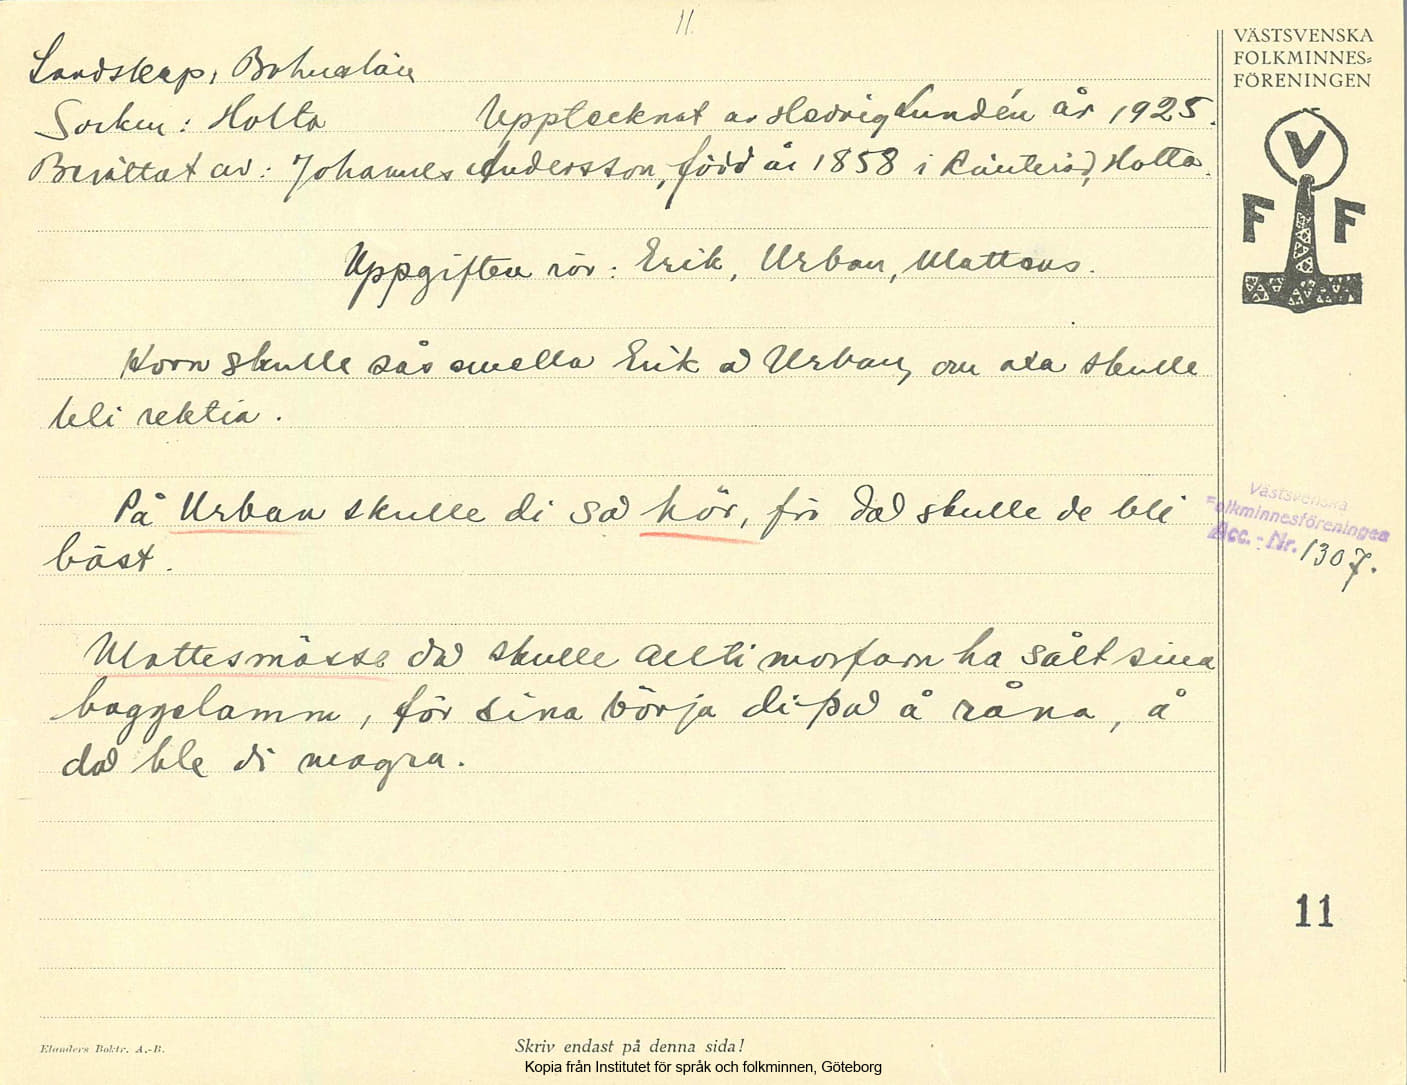 11.
VÄSTSVENSKA
FOLKMINNES=
FÖRENINGEN
V
F F
Landskap: Bohuslän
Socken: Holta Upptecknat av Hedvig Lundén år 1925.
Berättat av: Johannes Andersson, född år 1858 i Holta.
Uppgiften rör: Erik, Urban, Matteus.
Korn skulle sås mella Erik å Urban, om axa skulle
bli rektia.
På Urban skulle di så hör, för då skulle de bli
bäst.
Västsvenska
Folkminnesföreningen
Acc. - Nr. 1307.
Mattesmässe då skulle allti morfarn ha sålt sina
baggelamm, för sina börja di på å råna, å
då ble di magra.
11
Elanders Boktr. A.-B.
Skriv endast på denna sida!
Kopia från Institutet för språk och folkminnen, Göteborg